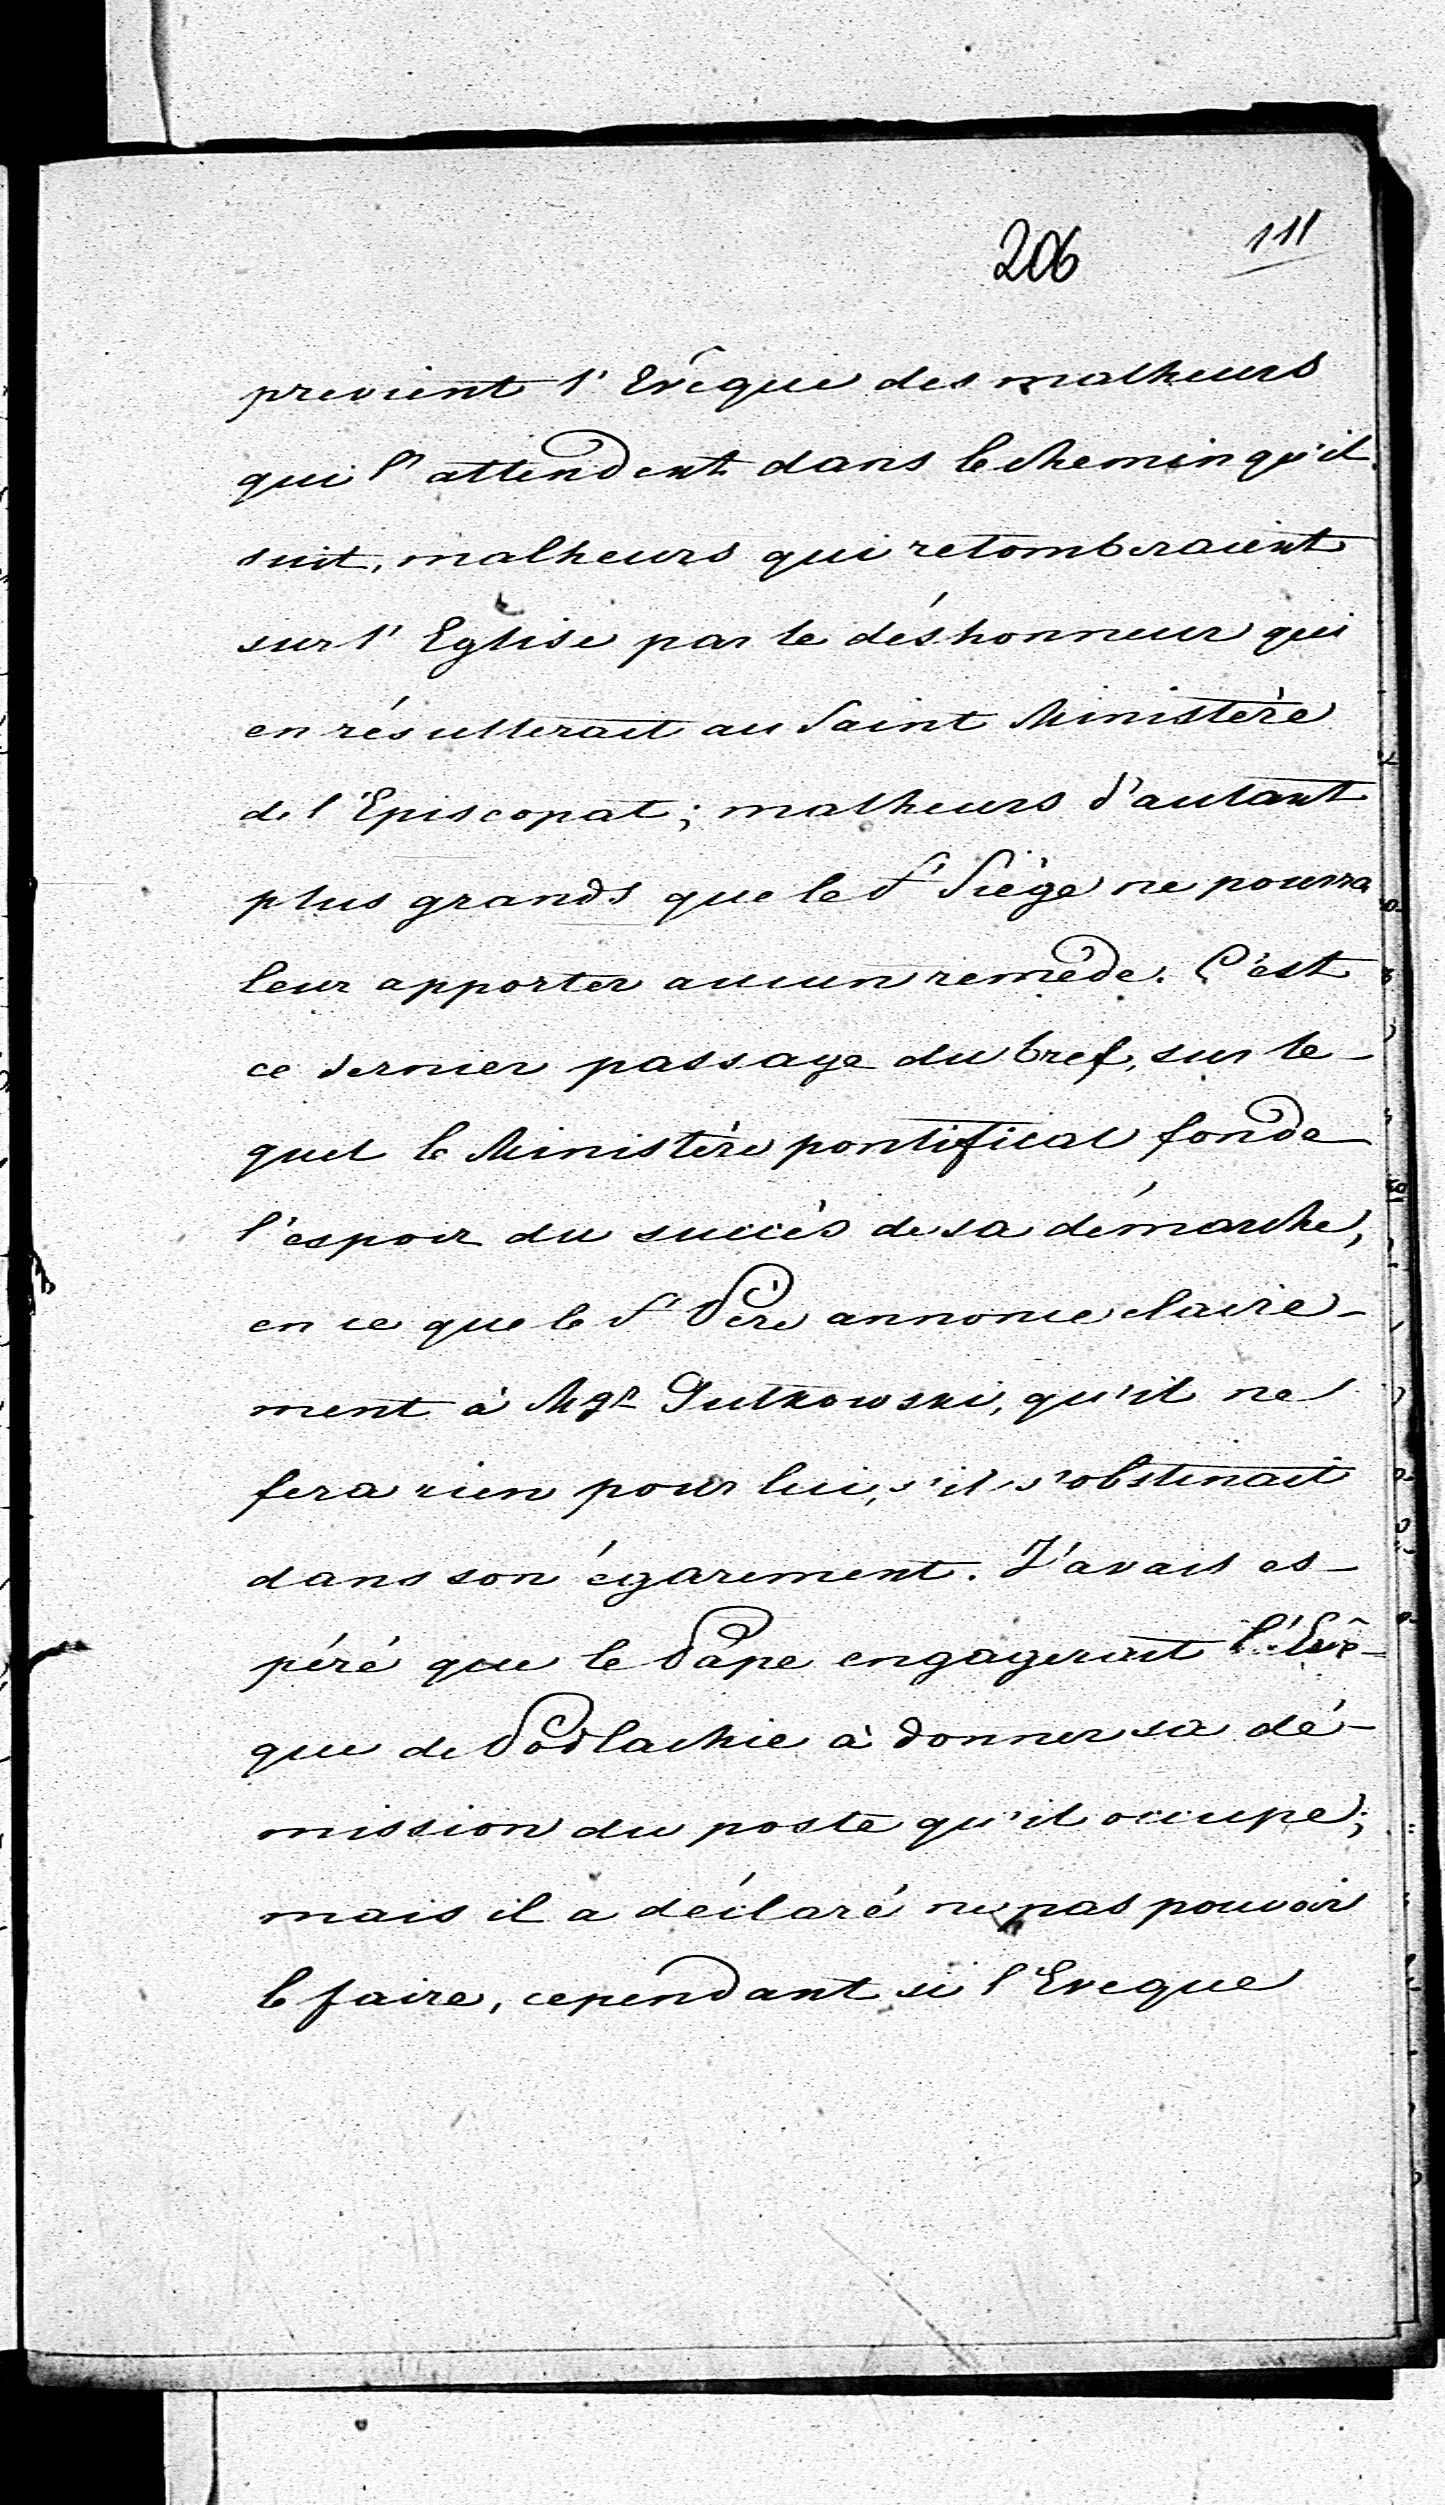 206 111
previent l'Evêque des malheurs
qui l'attendent dans le chemin qu'il
suit, malheurs qui retomberaient
sur l'Eglise par le déshonneur qui
en résulterait au Saint Ministère
de l'Episcopat; malheurs d'autant
plus grands que le St Siège ne pourra
leur apporter aucun remède. C'est
ce dernier passage du bref, sur le-
quel le Ministère pontifical fonde
l'espoir du succès de sa démarche,
en ce que le St Père annonce claire-
ment à Mgr Gutkowski, qu'il ne
fera rien pour lui, s'il s'obstinait
dans son égarement. J'avais es-
péré que le Pape engagerait l'Evê-
que de Podlachie à donner sa dé-
mission du poste qu'il occupe;
mais il a déclaré ne pas pouvoir
le faire, cependant si l'Eveque